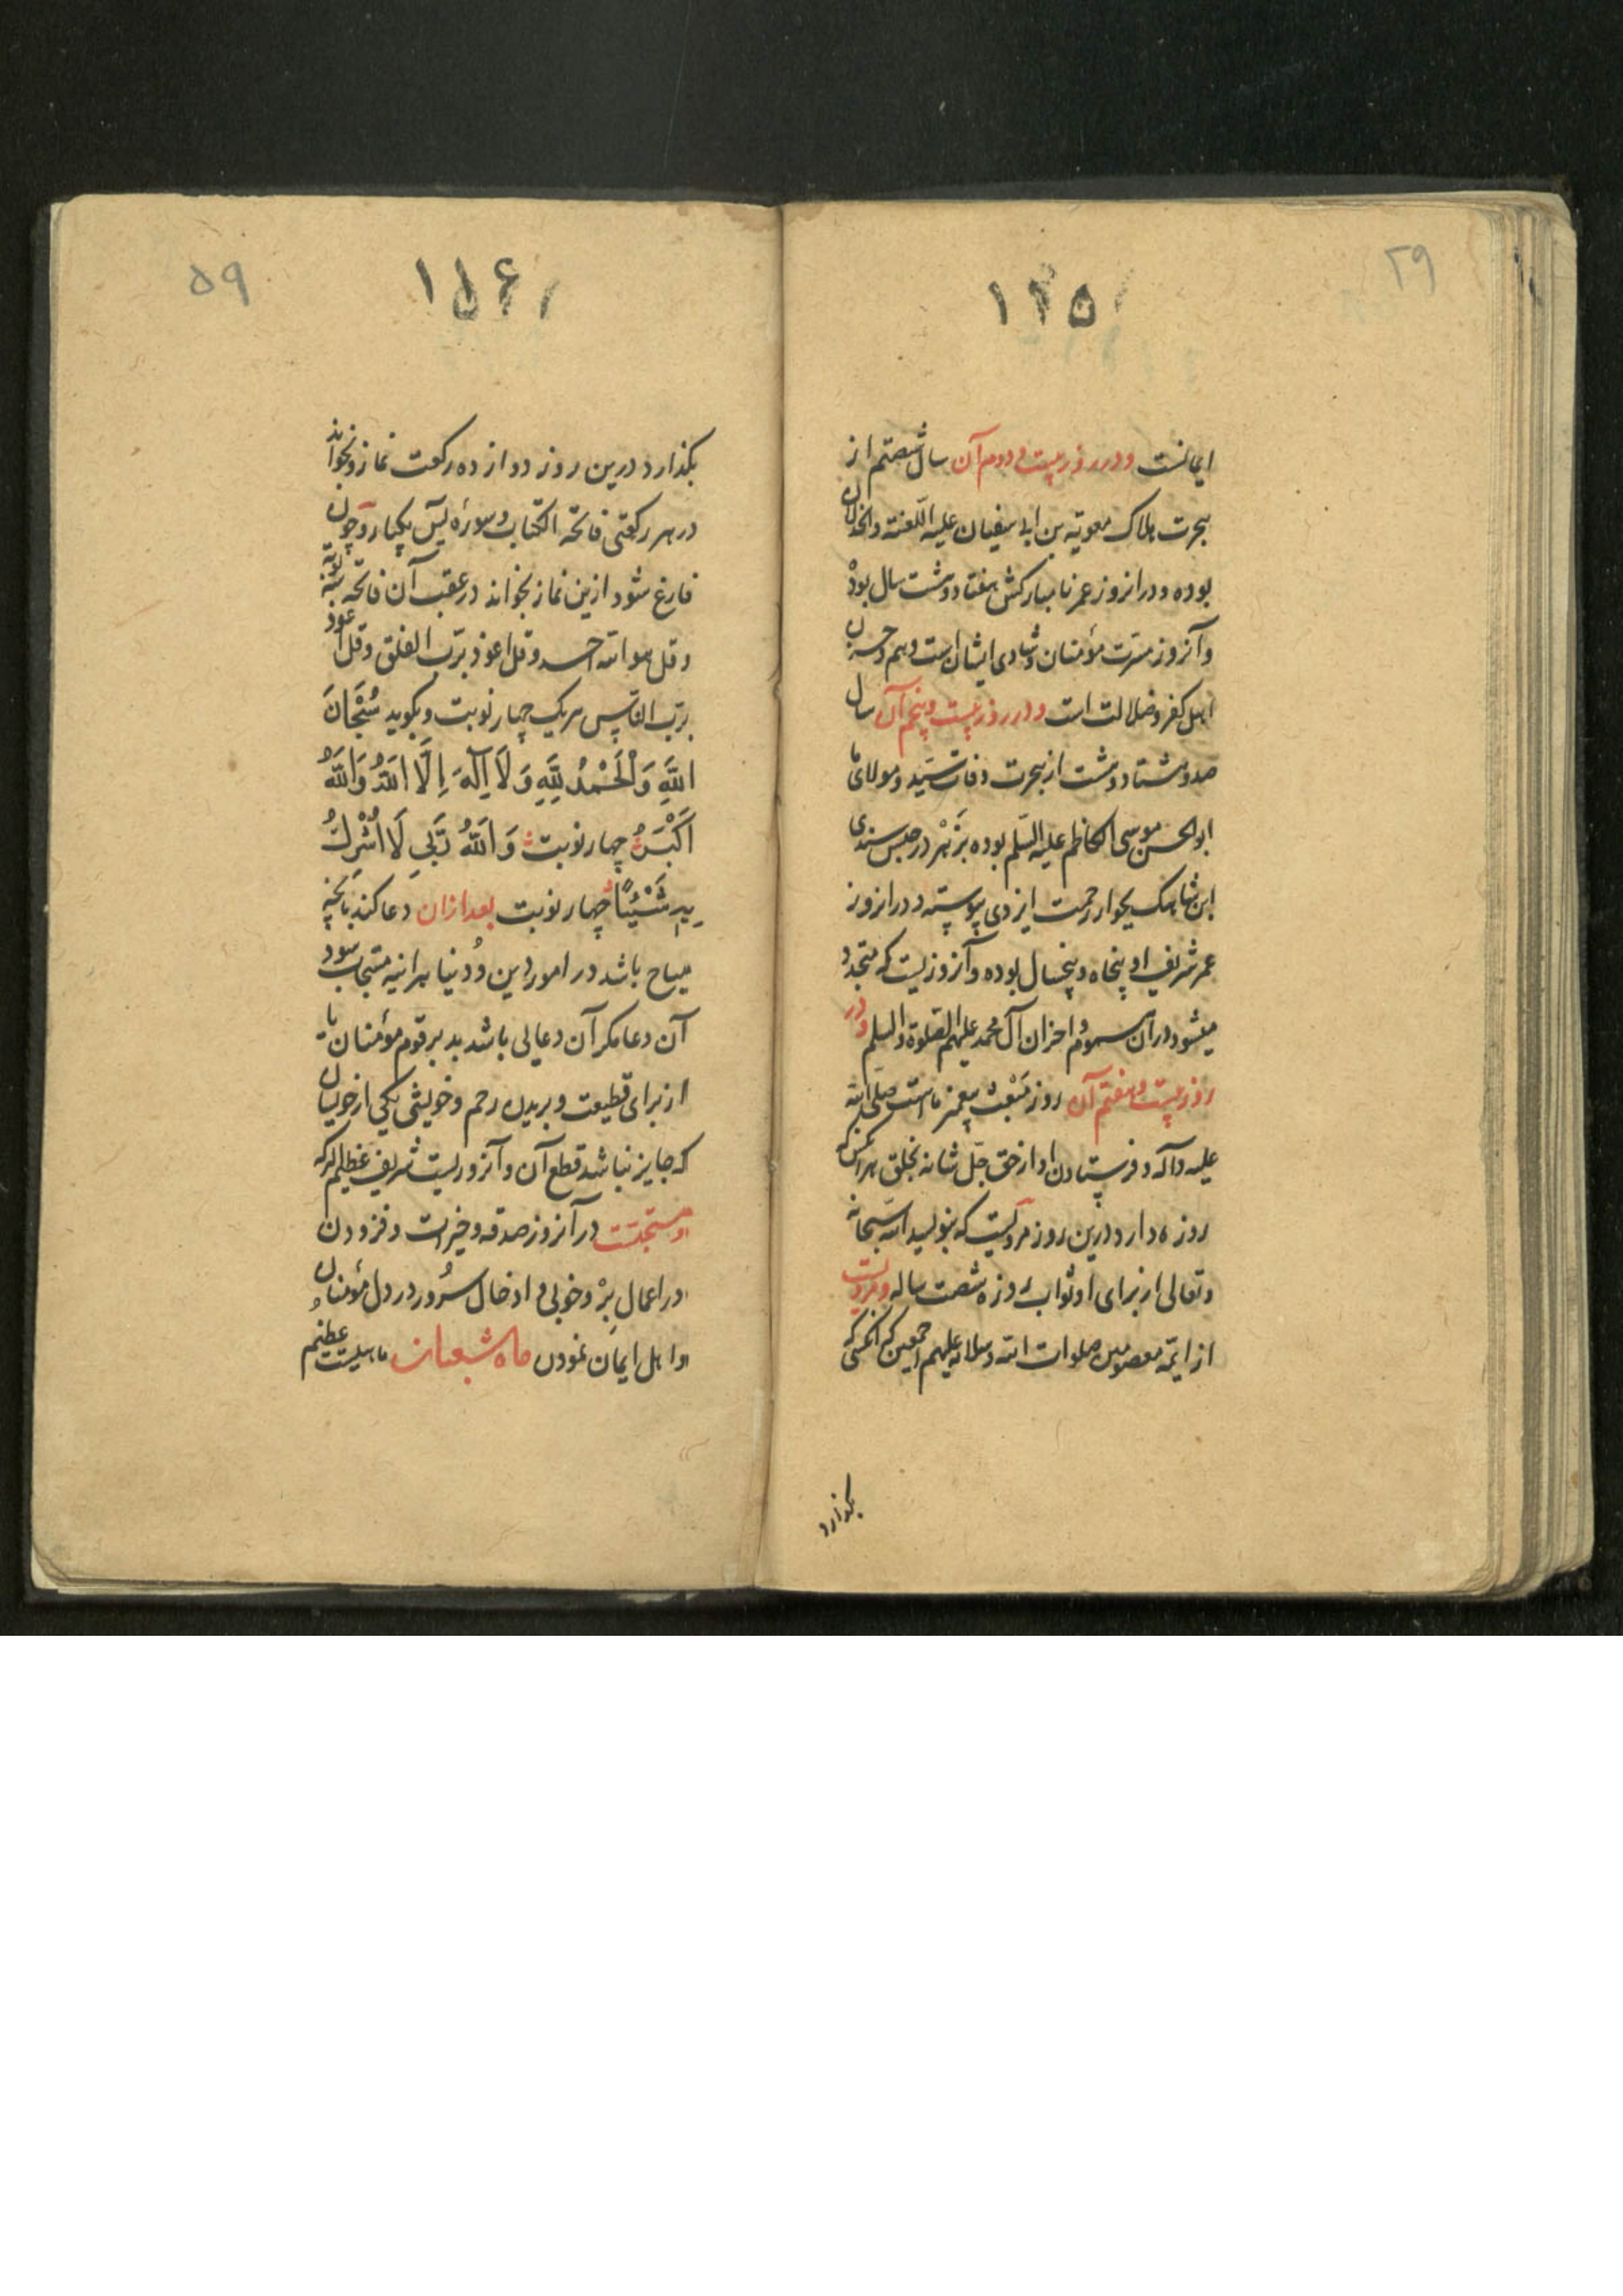 ۲۹
۱۱۵
ایمانست و در روز بیست و دوم آن سال شصتم از
هجرت هلاک معویة بن ابی سفیان علیه اللعنة والخذلان
بوده و درانروز عمر نامبارکش هفتاد و هشت سال بود
و آنروز مسرت مؤمنان و شادی ایشان است و هم و حسرت
اهل کفر و ضلالت است و در روز بیست و پنجم آن سال
صد و هشتاد و هشت از هجرت وفات سید و مولای ما
ابو الحسن موسی الکاظم علیه السلم بوده بزهر در حبس سندی
ابن شاهک بجوار رحمت ایزدی پیوسته و درانروز
عمر شریف او پنجاه و پنجسال بوده و آنروزیست که متجدد
میشود دران هموم و احزان آل محمد علیهم الصلوة والسلم و در
روز بیست و هفتم آن روز مبعث پیغمبر ماست صلی الله
علیه وآله و فرستادن او از حق جل شانه بخلق هر آنکس که
روزه دارد درین روز مرویست که بنویسد الله سبحانه
وتعالی از برای او ثواب روزه شصت ساله و مرویست
از ائمه معصومین صلوات الله وسلامه علیهم اجمعین که آنکسی که
بگذارد
۵۹
۱۱۶
بگذارد درین روز دوازده رکعت نماز و بخواند
در هر رکعتی فاتحة الکتاب و سوره یس یکبار و چون
فارغ شود ازین نماز بخواند در عقب آن فاتحه سه نوبة
و قل هو الله احد و قل اعوذ برب الفلق و قل اعوذ
برب الناس هریک چهار نوبت و بکوید سُبْحَانَ
اللهِ وَالْحَمْدُ لِلَّهِ وَلَا اِلٰهَ اِلَّا اللهُ وَاللهُ
اَکْبَرُ چهار نوبت وَ اللهُ رَبِّی لَا اُشْرِکُ
بِهِ شَیْئًا چهار نوبت بعد ازان دعا کند بآنچه
مباح باشد در امور دین و دنیا هرآینه مستجاب شود
آن دعا مکر آن دعایی باشد بد بر قوم مؤمنان یا
از برای قطیعت و بریدن رحم و خویشی یکی از خویشان
که جایز نباشد قطع آن و آنروزیست شریف عظیم البرکه
و مستحبست در آنروز صدقه و خیرات و فزودن
در اعمال بِرْ و خوبی و ادخال سُرور در دل مؤمنان
و اهل ایمان نمودن ماه شعبان ماهیست عظیم